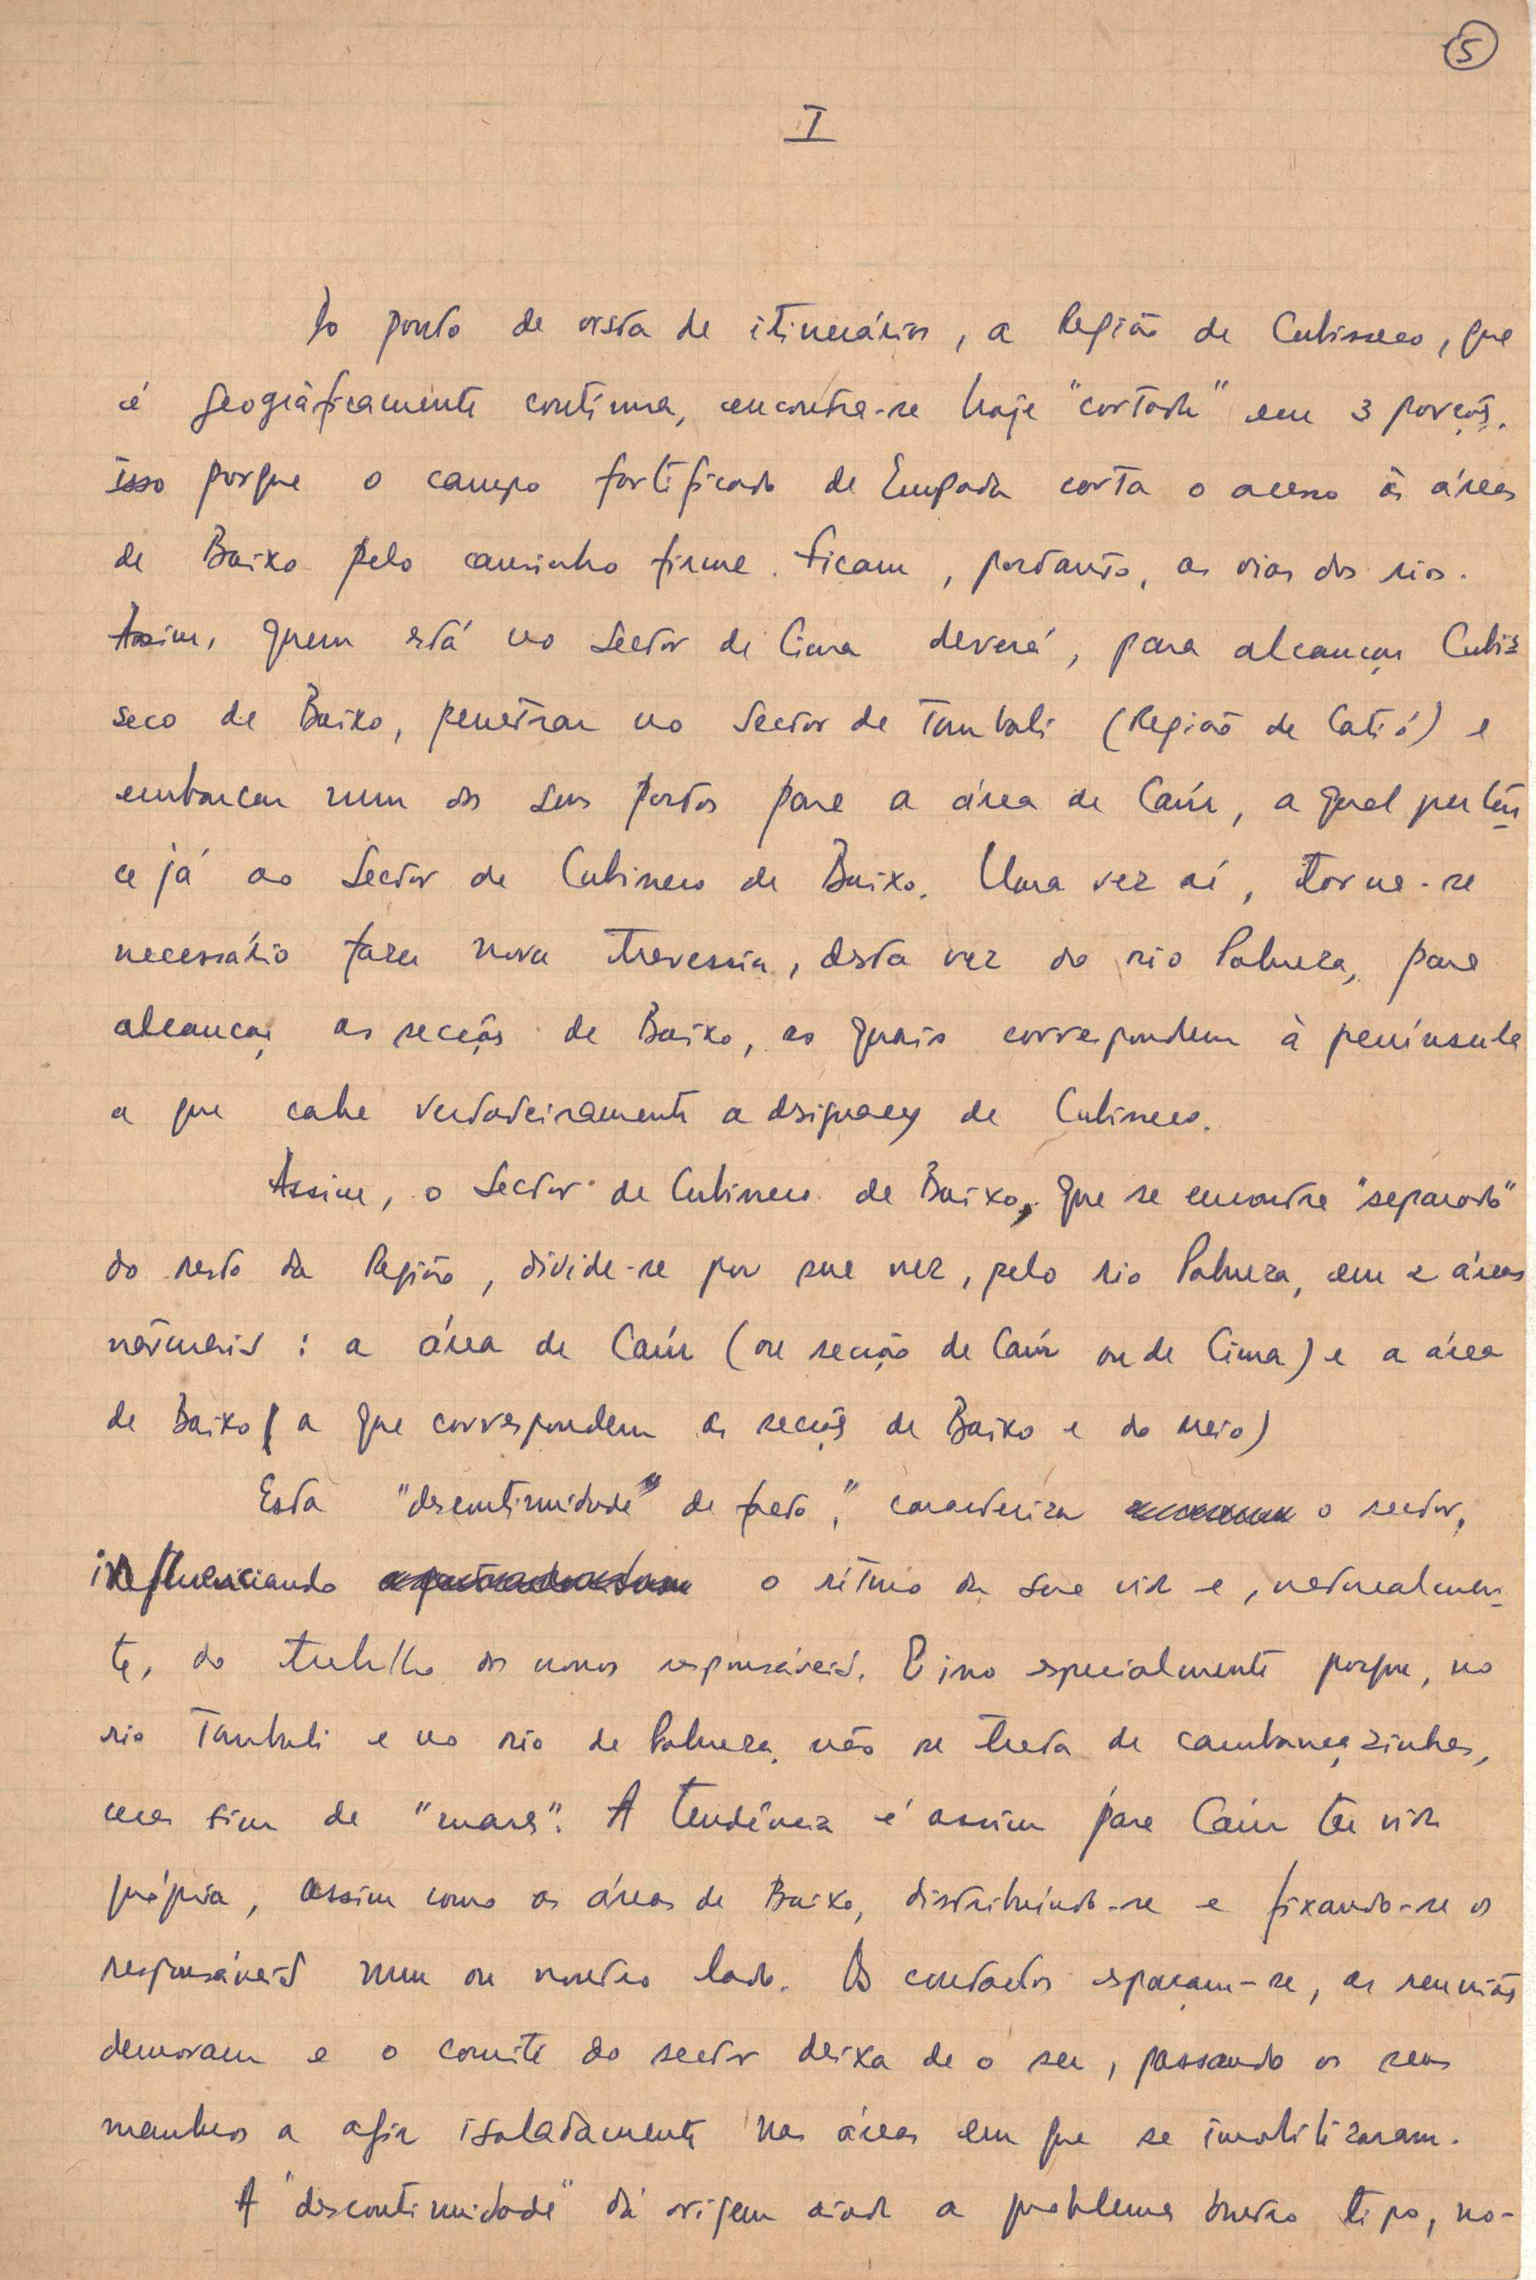 5
I
Do ponto de vista de itinerários, a Região de Cubisseco, que
é geogràficamente contínua, encontra-se hoje "cortada" em 3 porções.
isso porque o campo fortificado de Empada corta o acesso às áreas
de Baixo pelo caminho firme. Ficam, portanto, as vias dos rios.
Assim, quem está no Sector de Cima deverá, para alcançar Cubis-
seco de Baixo, penetrar no Sector de Tombali (Região de Catió) e
embarcar num dos seus portos para a área de Caúr, a qual perten-
ce já ao Sector de Cubisseco de Baixo. Uma vez aí, torna-se
necessário fazer nova travessia, desta vez do rio Pobreza, para
alcançar as secções de Baixo, as quais correspondem à península
a que cabe verdadeiramente a designação de Cubisseco.
Assim, o Sector de Cubisseco de Baixo, que se encontra "separado"
do resto da Região, divide-se por sua vez, pelo rio Pobreza, em 2 áreas
naturais: a área de Caúr (ou secção de Caúr ou de Cima) e a área
de Baixo (a que correspondem as secções de Baixo e do meio)
Esta "descontinuidade" de facto," caracteriza o sector,
influenciando o rítmo da sua vida e, naturalmen-
te, do trabalho dos nossos responsáveis. E isso especialmente porque, no
rio Tombali e no rio de Pobreza, não se trata de cambançazinhas,
mas sim de "mares". A tendência é assim para Caúr ter vida
própria, assim como as áreas de Baixo, distribuíndo-se e fixando-se os
responsáveis num ou noutro lado. Os contactos espaçam-se, as reuniões
demoram e o comité do sector deixa de o ser, passando os seus
membros a agir isoladamente nas áreas em que se imobilizaram.
A "descontinuidade" dá origem ainda a problemas doutro tipo, no-